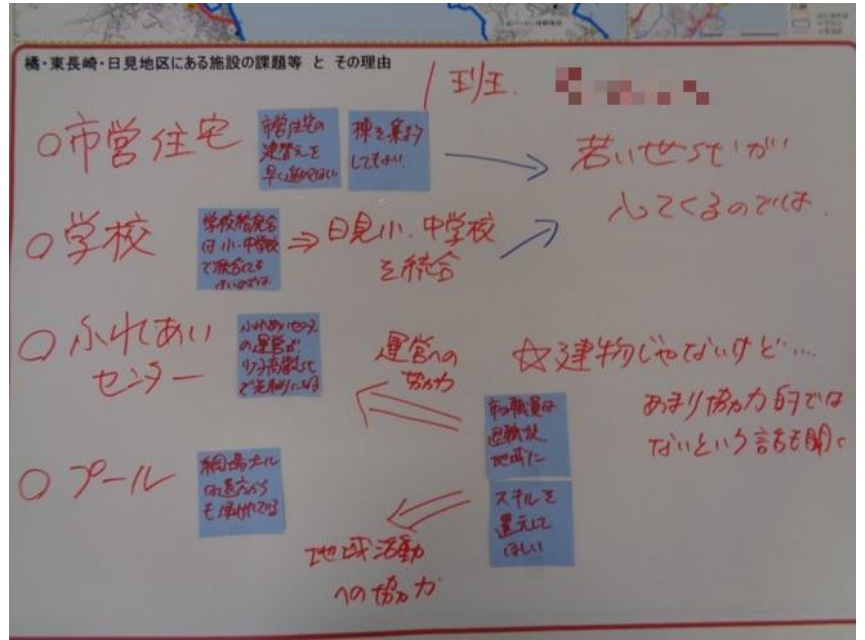 橘・東長崎・日見地区にある施設の課題等 と その理由
1班.
○市営住宅
市営住宅の
建替えを
早く進めてほしい
棟を集約
してもよい
若いせだいが
入ってくるのでは.
○学校
学校統廃合
は小・中学校
で統合しても
よいのでは
⇒ 日見小.中学校
を統合
○ふれあい
センター
ふれあいセンター
の運営が
少子高齢化
で先細りになる
運営への
協力
☆建物じゃないけど…
あまり協力的では
ないという話も聞く
市の職員は
退職後
地域に
スキルを
還元して
ほしい
○プール
網場プール
は遠方から
も
地域活動
への協力